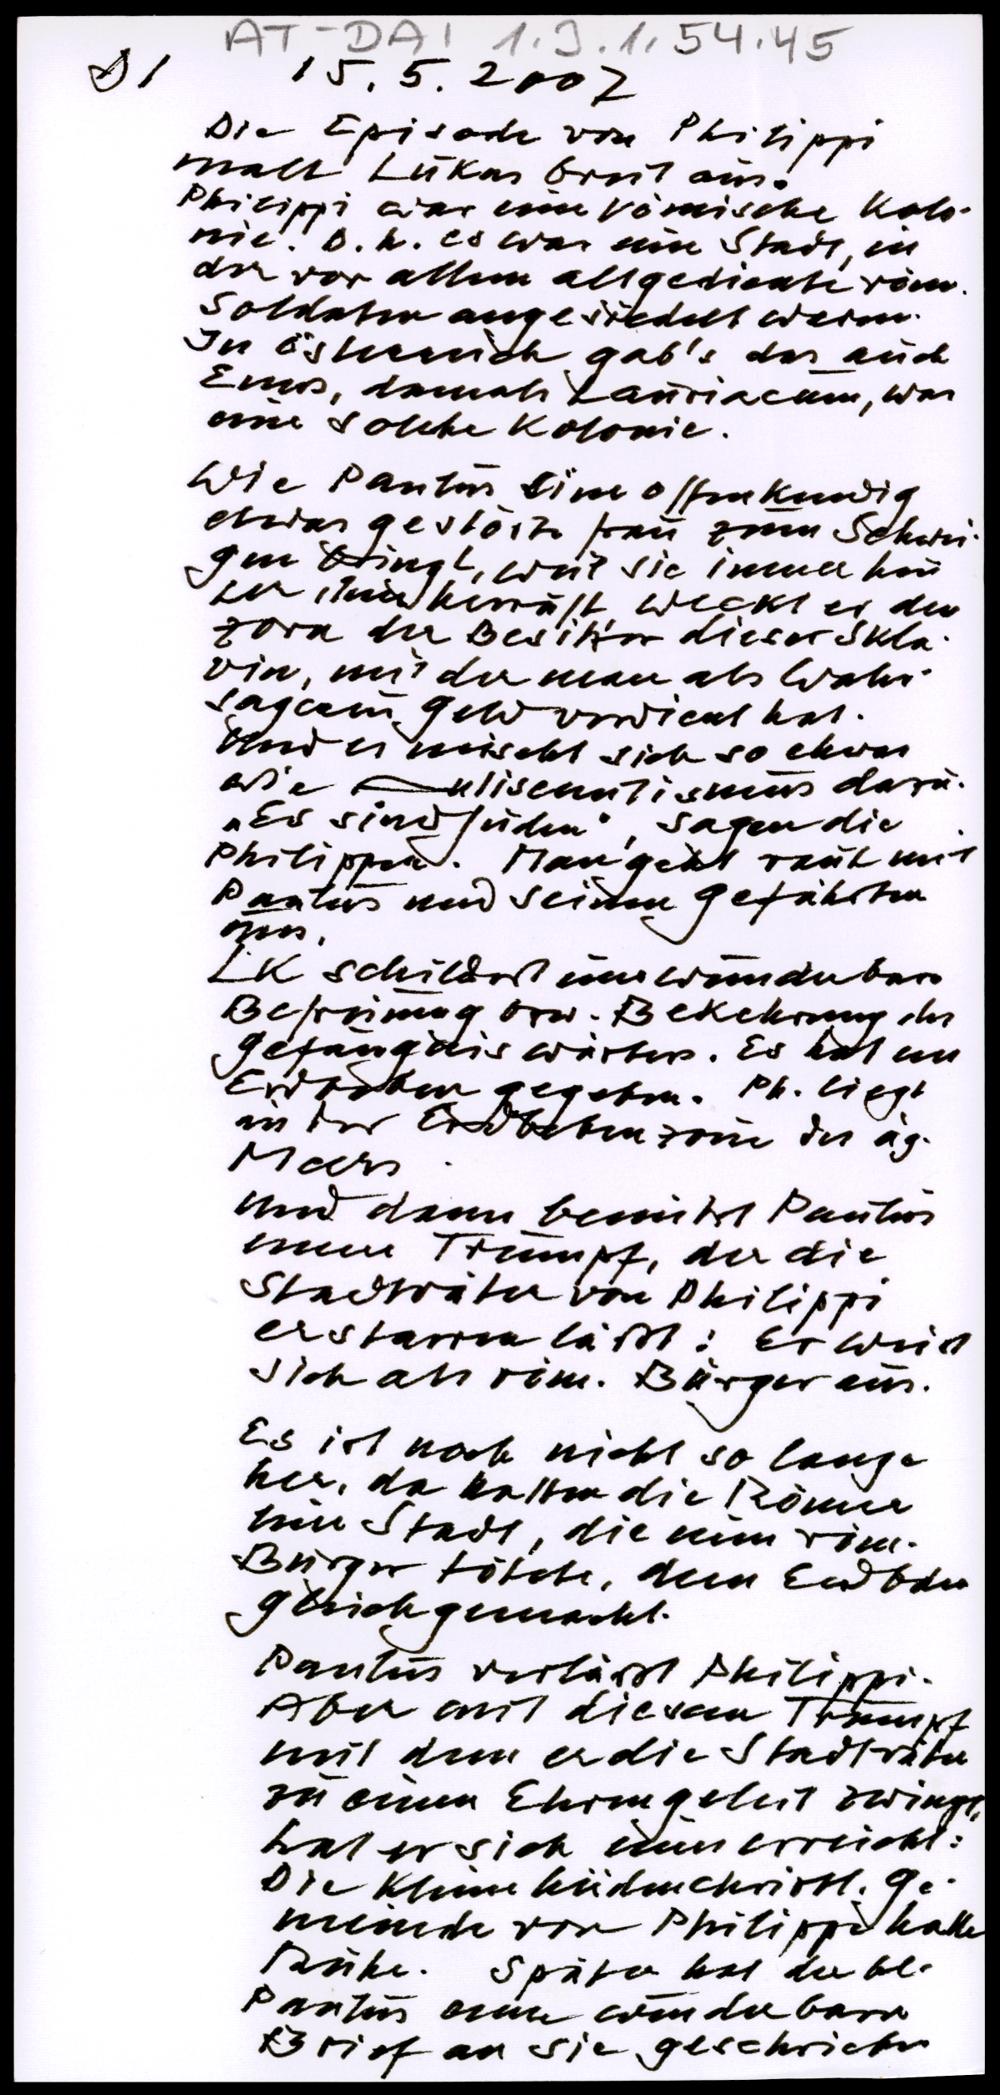 AT-DAI 1.3.1.54.45
D1 15.5.2007
Die Episode von Philippi
malt Lukas breit aus.
Philippi war eine römische Kolo-
nie. D.h. es war eine Stadt, in
der vor allem altgediente röm.
Soldaten angesiedelt waren.
In Österreich gab's das auch
Enns, damals Lauriacum, war
eine solche Kolonie.
Wie Paulus eine offenkundig
etwas gestörte Frau zum Schwei-
gen bringt, weil sie immer hin
ter ihm herruft, weckt er den
Zorn der Besitzer dieser Skla-
vin, mit der man als Wahr-
sagerin Geld verdient hat.
Und es mischt sich so etwas
wie Antisemitismus darein.
„Es sind Juden", sagen die
Philipper. Man geht rauh mit
Paulus und seinen Gefährten
um.
LK schildert eine wunderbare
Befreiung bzw. Bekehrung des
Gefängniswärters. Es hat ein
Erdbeben gegeben. Ph. liegt
in der Erdbebenzone des äg.
Meers.
Und dann benützt Paulus
einen Trumpf, der die
Stadträte von Philippi
erstarren läßt: Er weist
sich als röm. Bürger aus.
Es ist noch nicht so lange
her, da hatten die Römer
eine Stadt, die einen röm.
Bürger tötete, dem Erdboden
gleichgemacht.
Paulus verläßt Philippi.
Aber mit diesem Trumpf
mit dem er die Stadträte
zu einem Ehrengeleit zwingt,
hat er sich eines erreicht:
Die kleine heidenchristl. Ge-
meinde von Philippi hatte
Ruhe. Später hat der hl.
Paulus einen wunderbaren
Brief an sie geschrieben